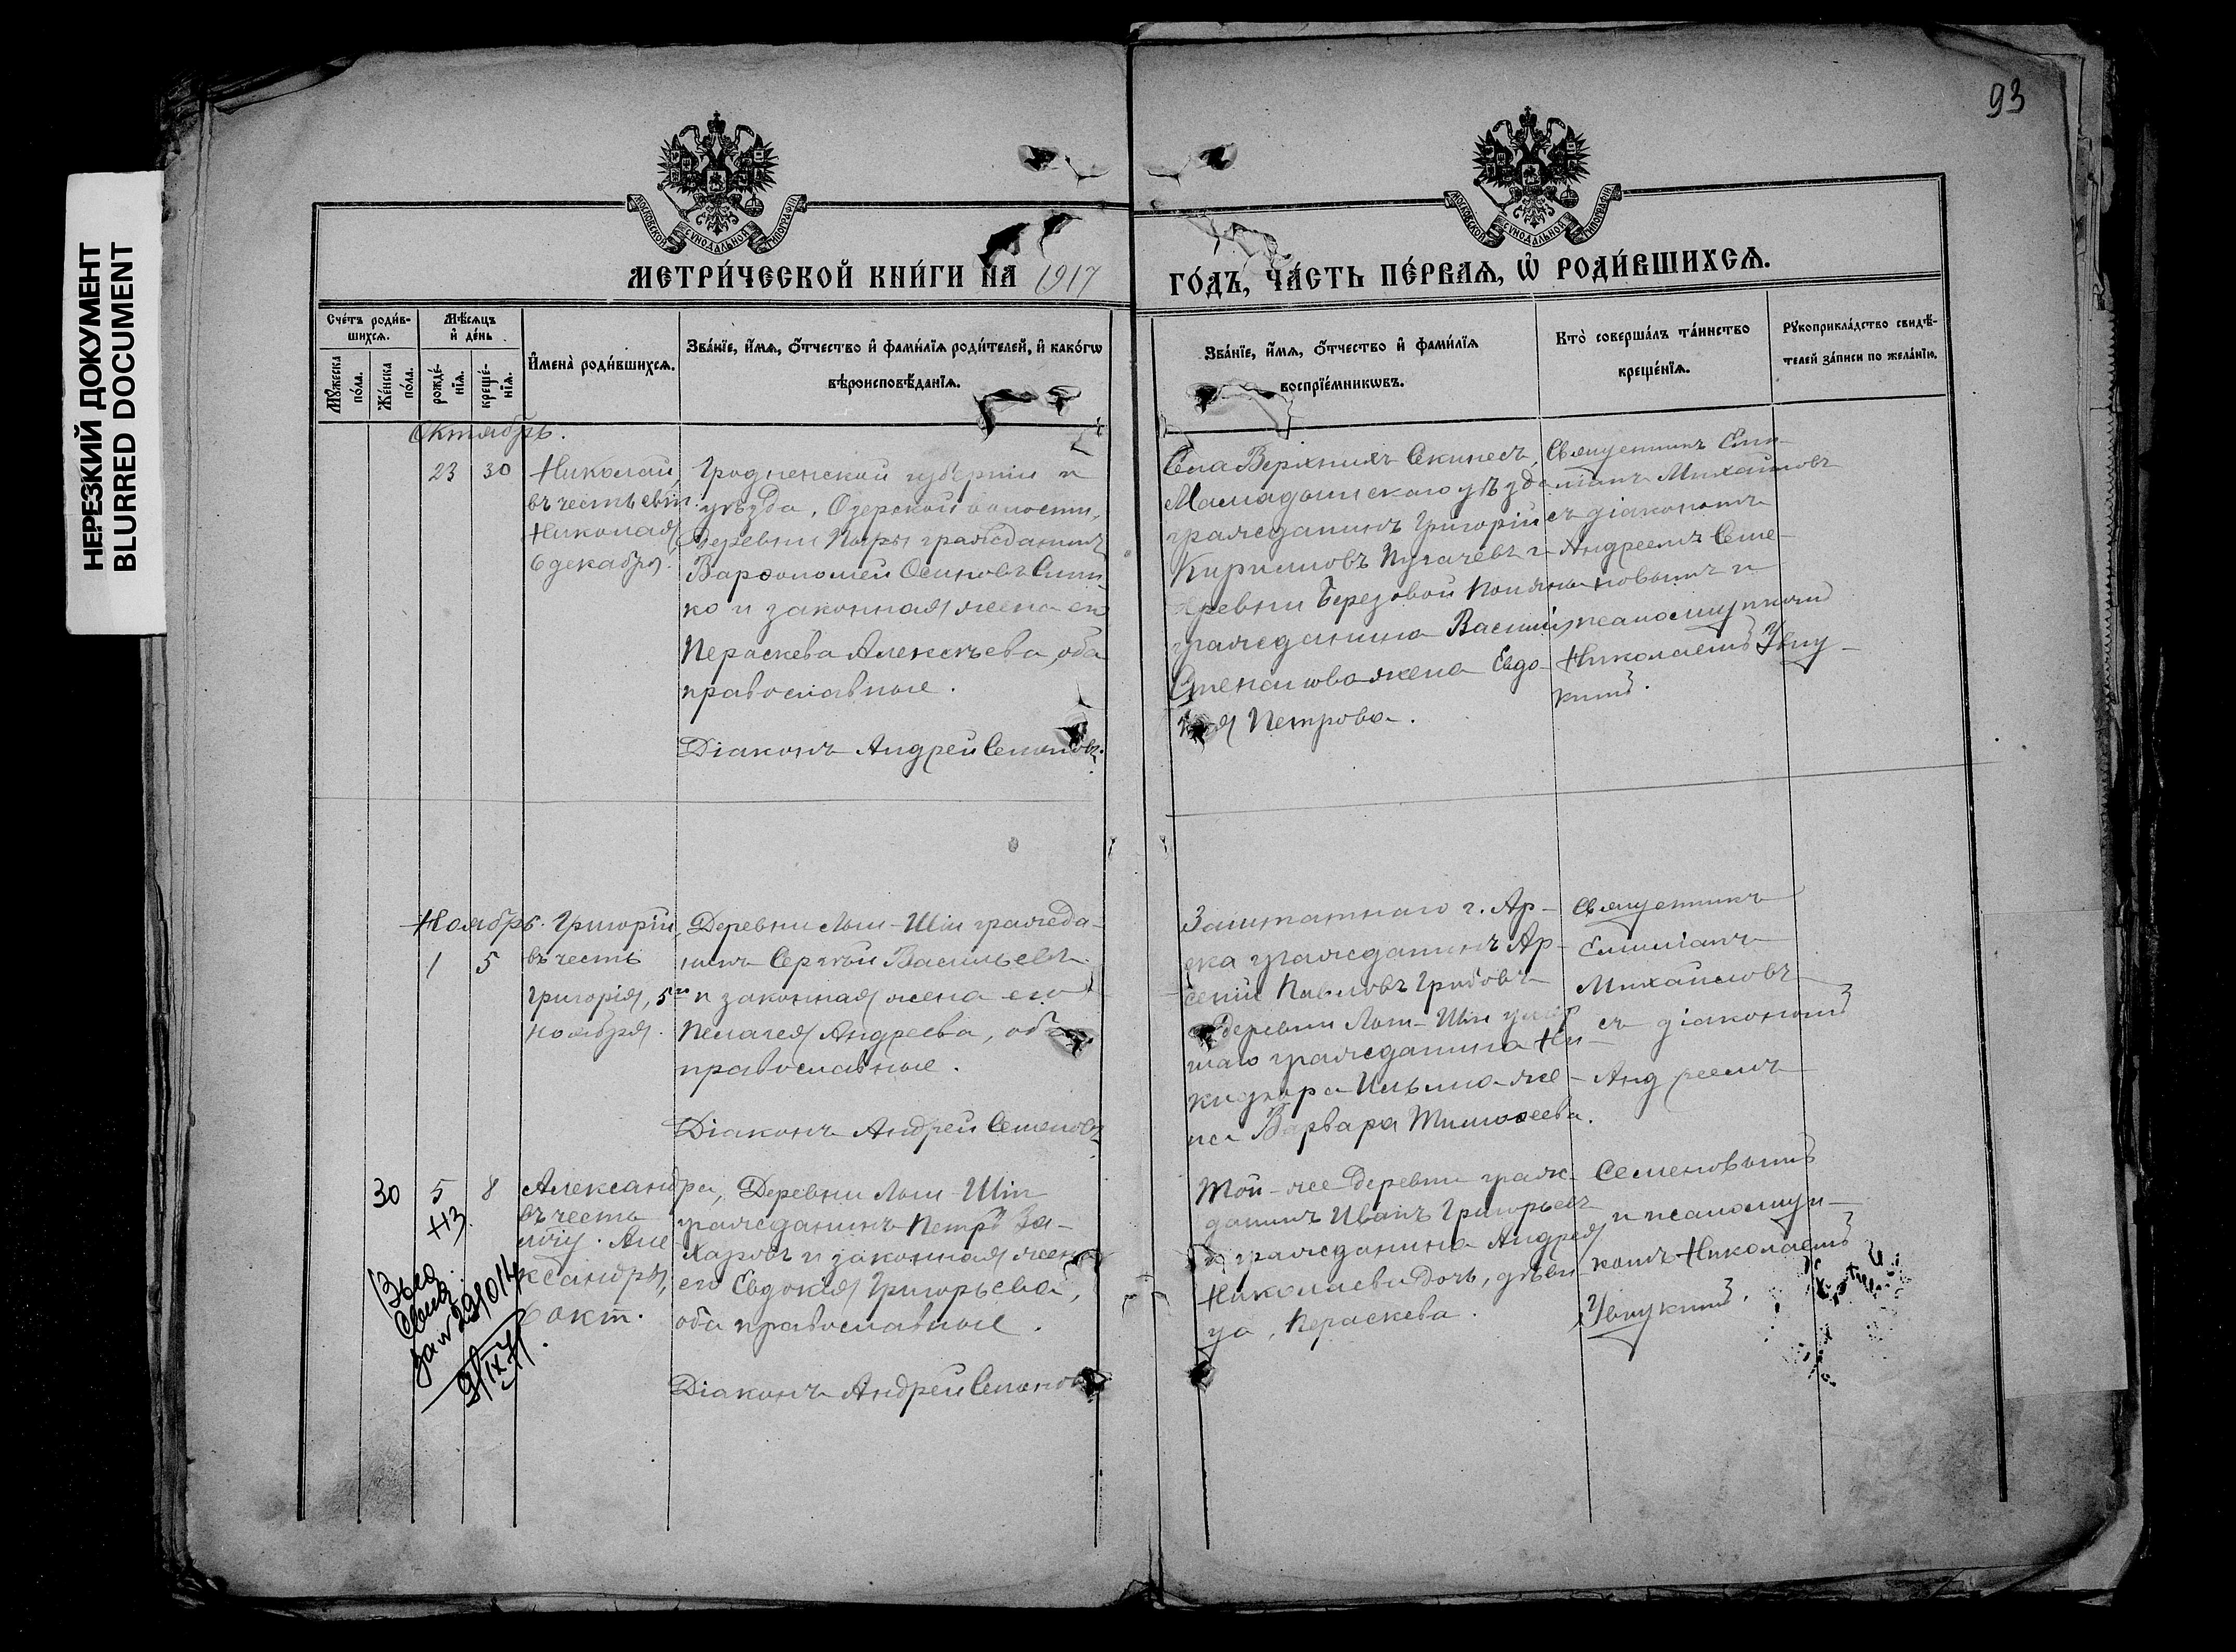 НЕРЕЗКИЙ ДОКУМЕНТ
BLURRED DOCUMENT
93
МОСКОВСКОЙ СУНОДАЛЬНОЙ ТИПОГРАФІИ
МОСКОВСКОЙ СУНОДАЛЬНОЙ ТИПОГРАФІИ
МЕТРИ́ЧЕСКОЙ КНИ́ГИ НА 1917
ГО́ДЪ, ЧА́СТЬ ПЕ́РВАѦ, Ѡ РОДИ́ВШИХСѦ.
Сче́тъ роди́в-
шихсѧ.
Мꙋжеска по́ла.
Же́нска по́ла.
Мѣ́сѧцъ
и҆ де́нь
рожде́-
нїѧ.
креще́-
нїѧ.
И҆мена̀ роди́вшихсѧ.
Зва́нїе, и҆́мѧ, ѻ҆́тчество и҆ фами́лїѧ роди́телей, и҆ како́гѡ
вѣроисповѣ́данїѧ.
Зва́нїе, и҆́мѧ, ѻ҆́тчество и҆ фами́лїѧ
воспрїе́мникѡвъ.
Кто̀ соверша́лъ та́инство
креще́нїѧ.
Рꙋкоприкла́дство свидѣ́-
телей за́писи по жела́нїю.
Октябрь.
23 30
Николай,
въ честь свт.
Николая
6 декабря.
Гродненской губерніи и
уѣзда, Озерской волости,
деревни граждaнинъ
Варѳоломей Осиповъ Сини-
ко и законная жена его
Параскева Алексѣева, оба
православные.
Діаконъ Андрей Семеновъ.
Села Верхнихъ Секинесъ,
Мамадышскаго уѣзда
гражданинъ Григорій
Кириловъ Пугачевъ и
деревни Березовой Поляны
гражданина Василія
жена Евдо-
кія Петрова.
Священникъ Еми-
ліанъ Михайловъ
съ діакономъ
Андреемъ Семе-
новымъ и
псаломщикомъ
Николаемъ
Ноябрь.
1 5
Григорій,
въ честь
Григорія, 5го
ноября.
Деревни Лыш-Ши гражда-
нинъ Сергѣй Васильевъ
и законная жена его
Пелагея Андреева, оба
православные.
Діаконъ Андрей Семеновъ
Заштатнаго г. Ар-
ска гражданинъ Ар-
сеній Павловъ Грибовъ
и деревни Лыш-Ши умер-
шаго гражданина Ни-
кифора Ильина же-
на Варвара Тимоѳеева.
Священникъ
Емиліанъ
Михайловъ
съ діакономъ
Андреемъ
30 5 8
+13.
Александра,
въ честь
мчц. Але
ксандры,
6 окт.
Деревни Лыш-Ши
гражданинъ Петръ За-
харовъ и законная жена
его Евдокія Григорьева,
оба православные.
Діаконъ Андрей Семеновъ
Той-же деревни граж-
данинъ Иванъ Григорьевъ
и гражданина Андрея
Николаева дочь, дѣви-
ца, Параскева.
Семеновымъ
и псаломщи-
комъ Николаемъ